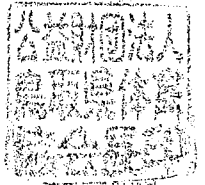 公益財団法人
鳥取県体育
協会